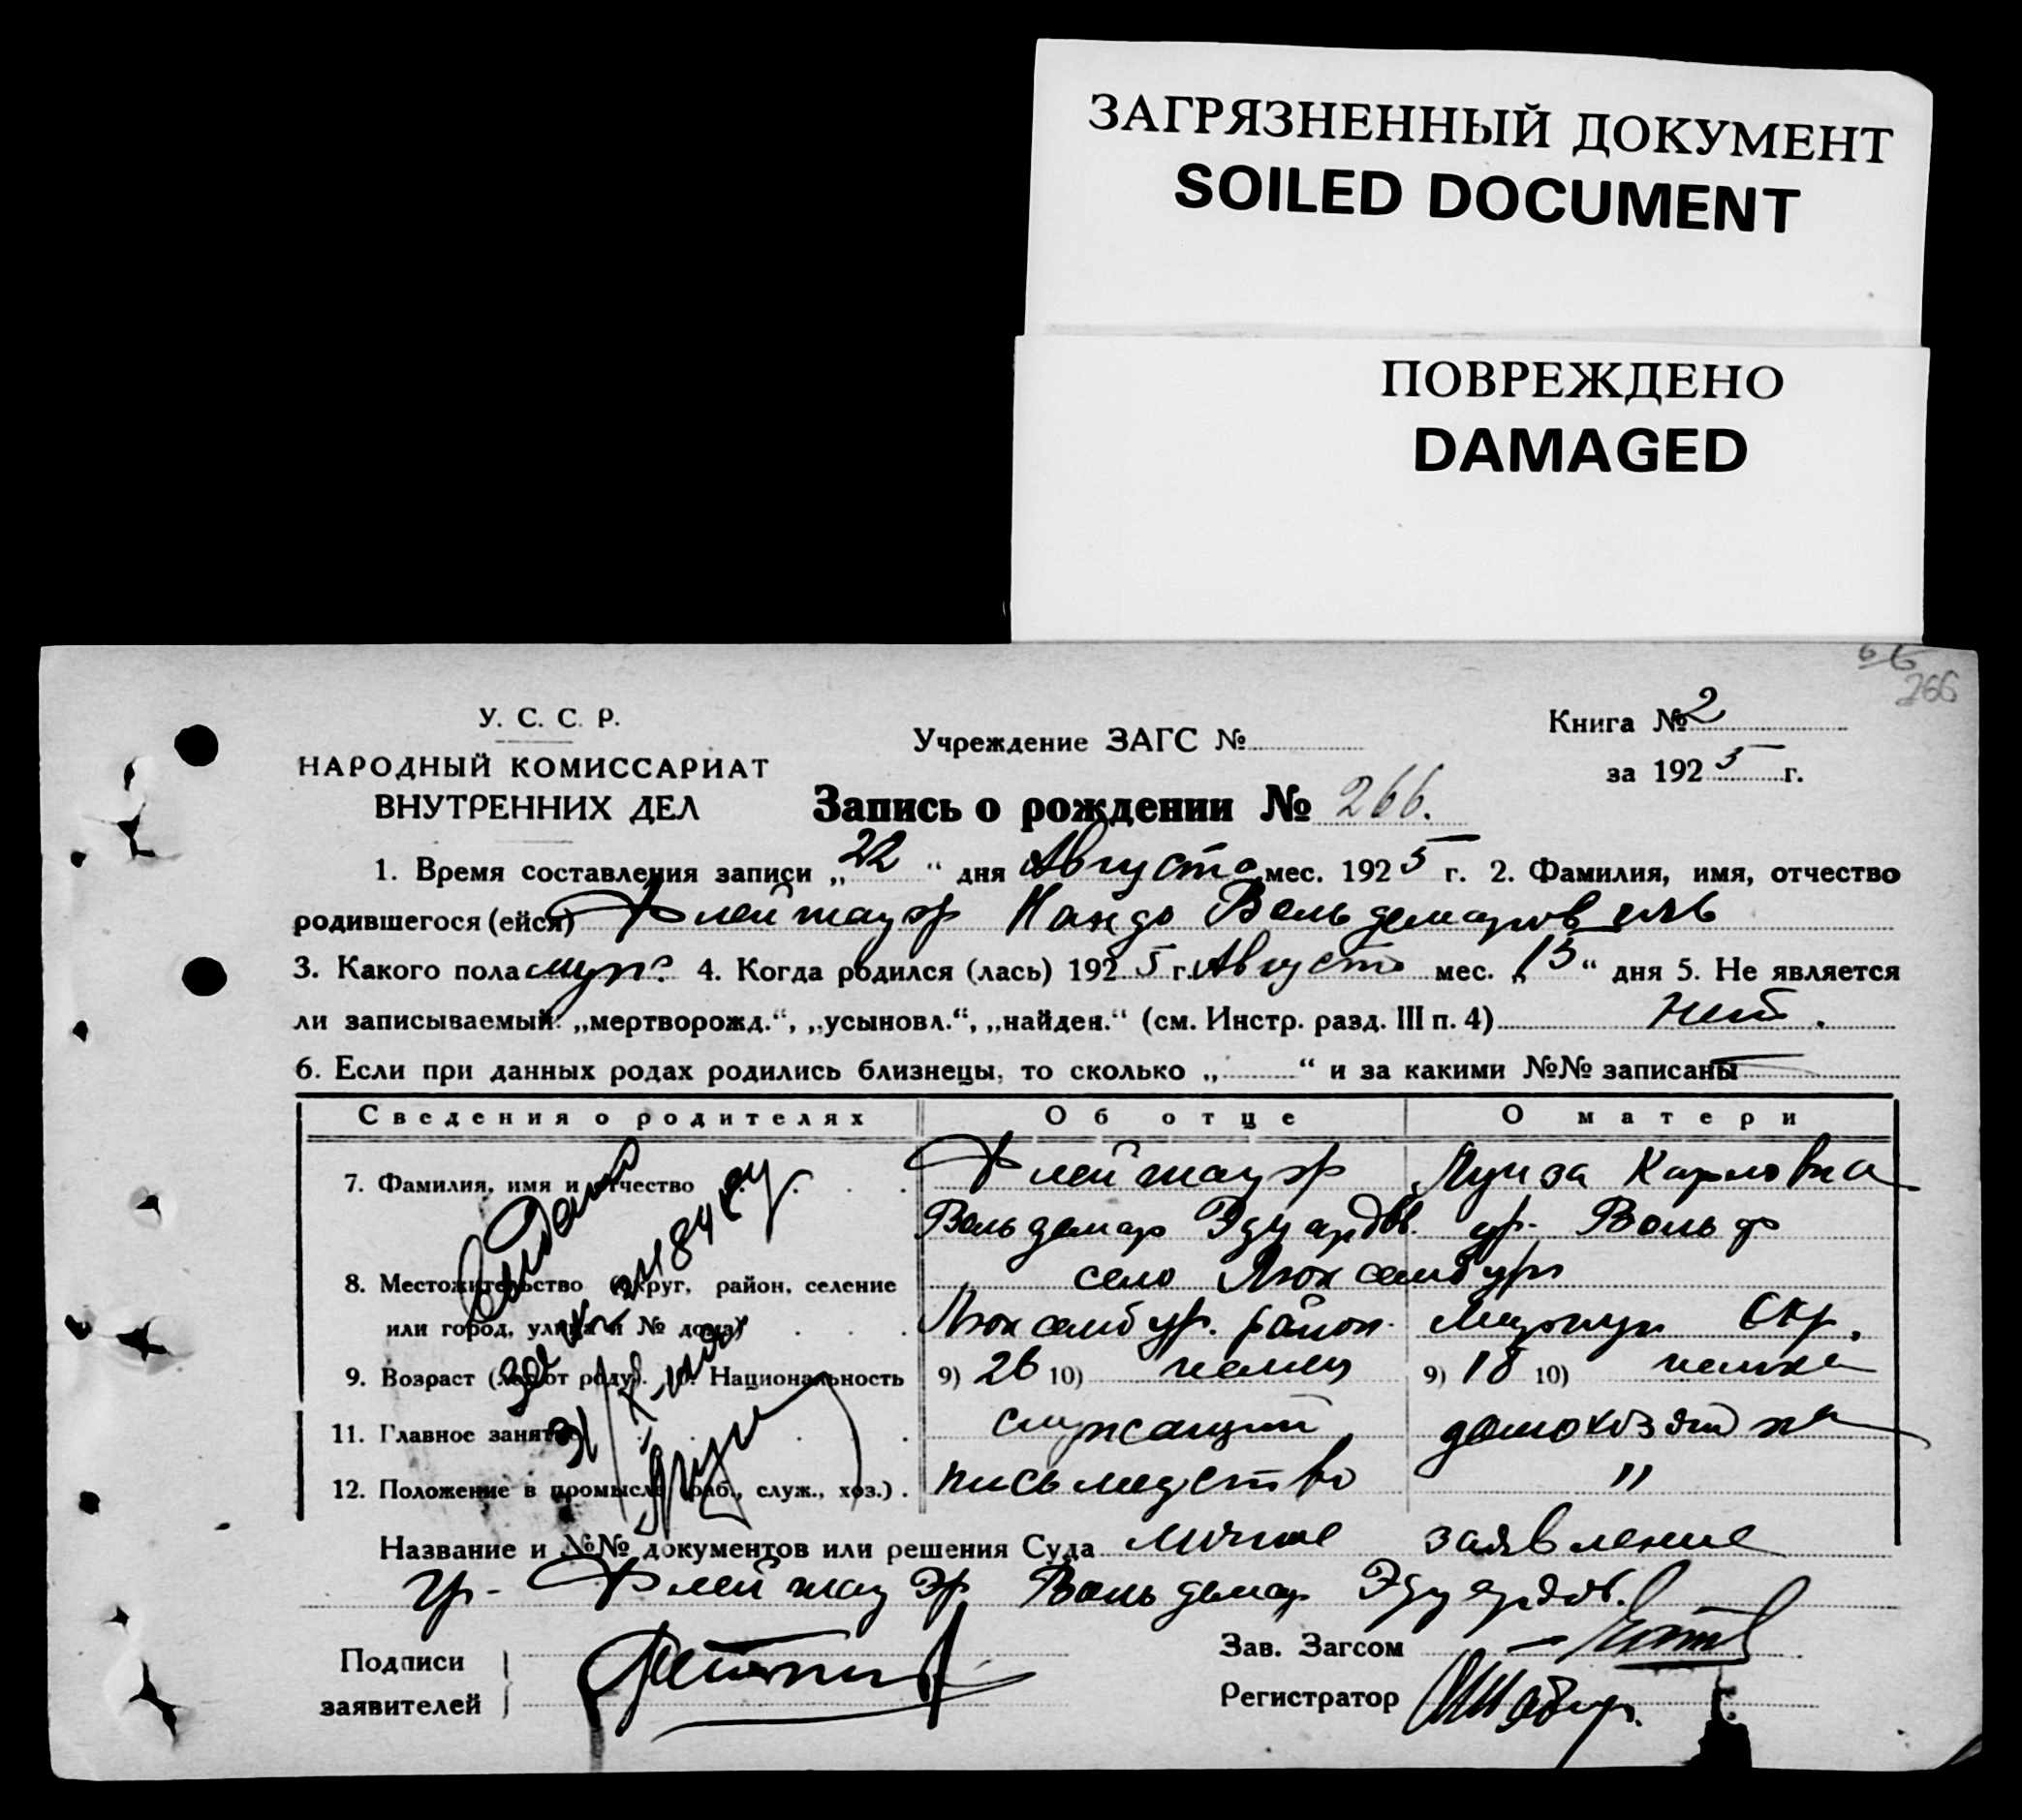 ЗАГРЯЗНЕННЫЙ ДОКУМЕНТ
SOILED DOCUMENT
ПОВРЕЖДЕНО
DAMAGED
266
У. С. С. Р.
НАРОДНЫЙ КОМИССАРИАТ
ВНУТРЕННИХ ДЕЛ
Учреждение ЗАГС №
Книга № 2
за 1925 г.
Запись о рождении № 266.
1. Время составления записи „22“ дня Августа мес. 1925 г. 2. Фамилия, имя, отчество
родившегося (ейся) Флейшауэр Вольдемарович
3. Какого пола муж. 4. Когда родился (лась) 1925 г. Августа мес. „15“ дня 5. Не является
ли записываемый: „мертворожд.“, „усыновл.“, „найден.“ (см. Инстр. разд. III п. 4) нет.
6. Если при данных родах родились близнецы, то сколько „ “ и за какими №№ записаны —
Сведения о родителях Об отце О матери
7. Фамилия, имя и отчество Флейшауэр Луиза Карловна
Вольдемар Эдуардов. ур. Вольф
8. Местожительство (округ, район, селение село Люксембург
или город, улица и № дома) Люксембур. район. Мариуп. Окр.
9. Возраст (лет от роду). 10. Национальность 9) 26 10) немец 9) 18 10) немка
11. Главное занятие служащий домохозяйка
12. Положение в промысле (раб., служ., хоз.) . письмоуство "
Название и №№ документов или решения Суда личное заявление
гр. Флейшауэр Вольдемар Эдуардов.
Подписи
заявителей
Зав. Загсом
Регистратор